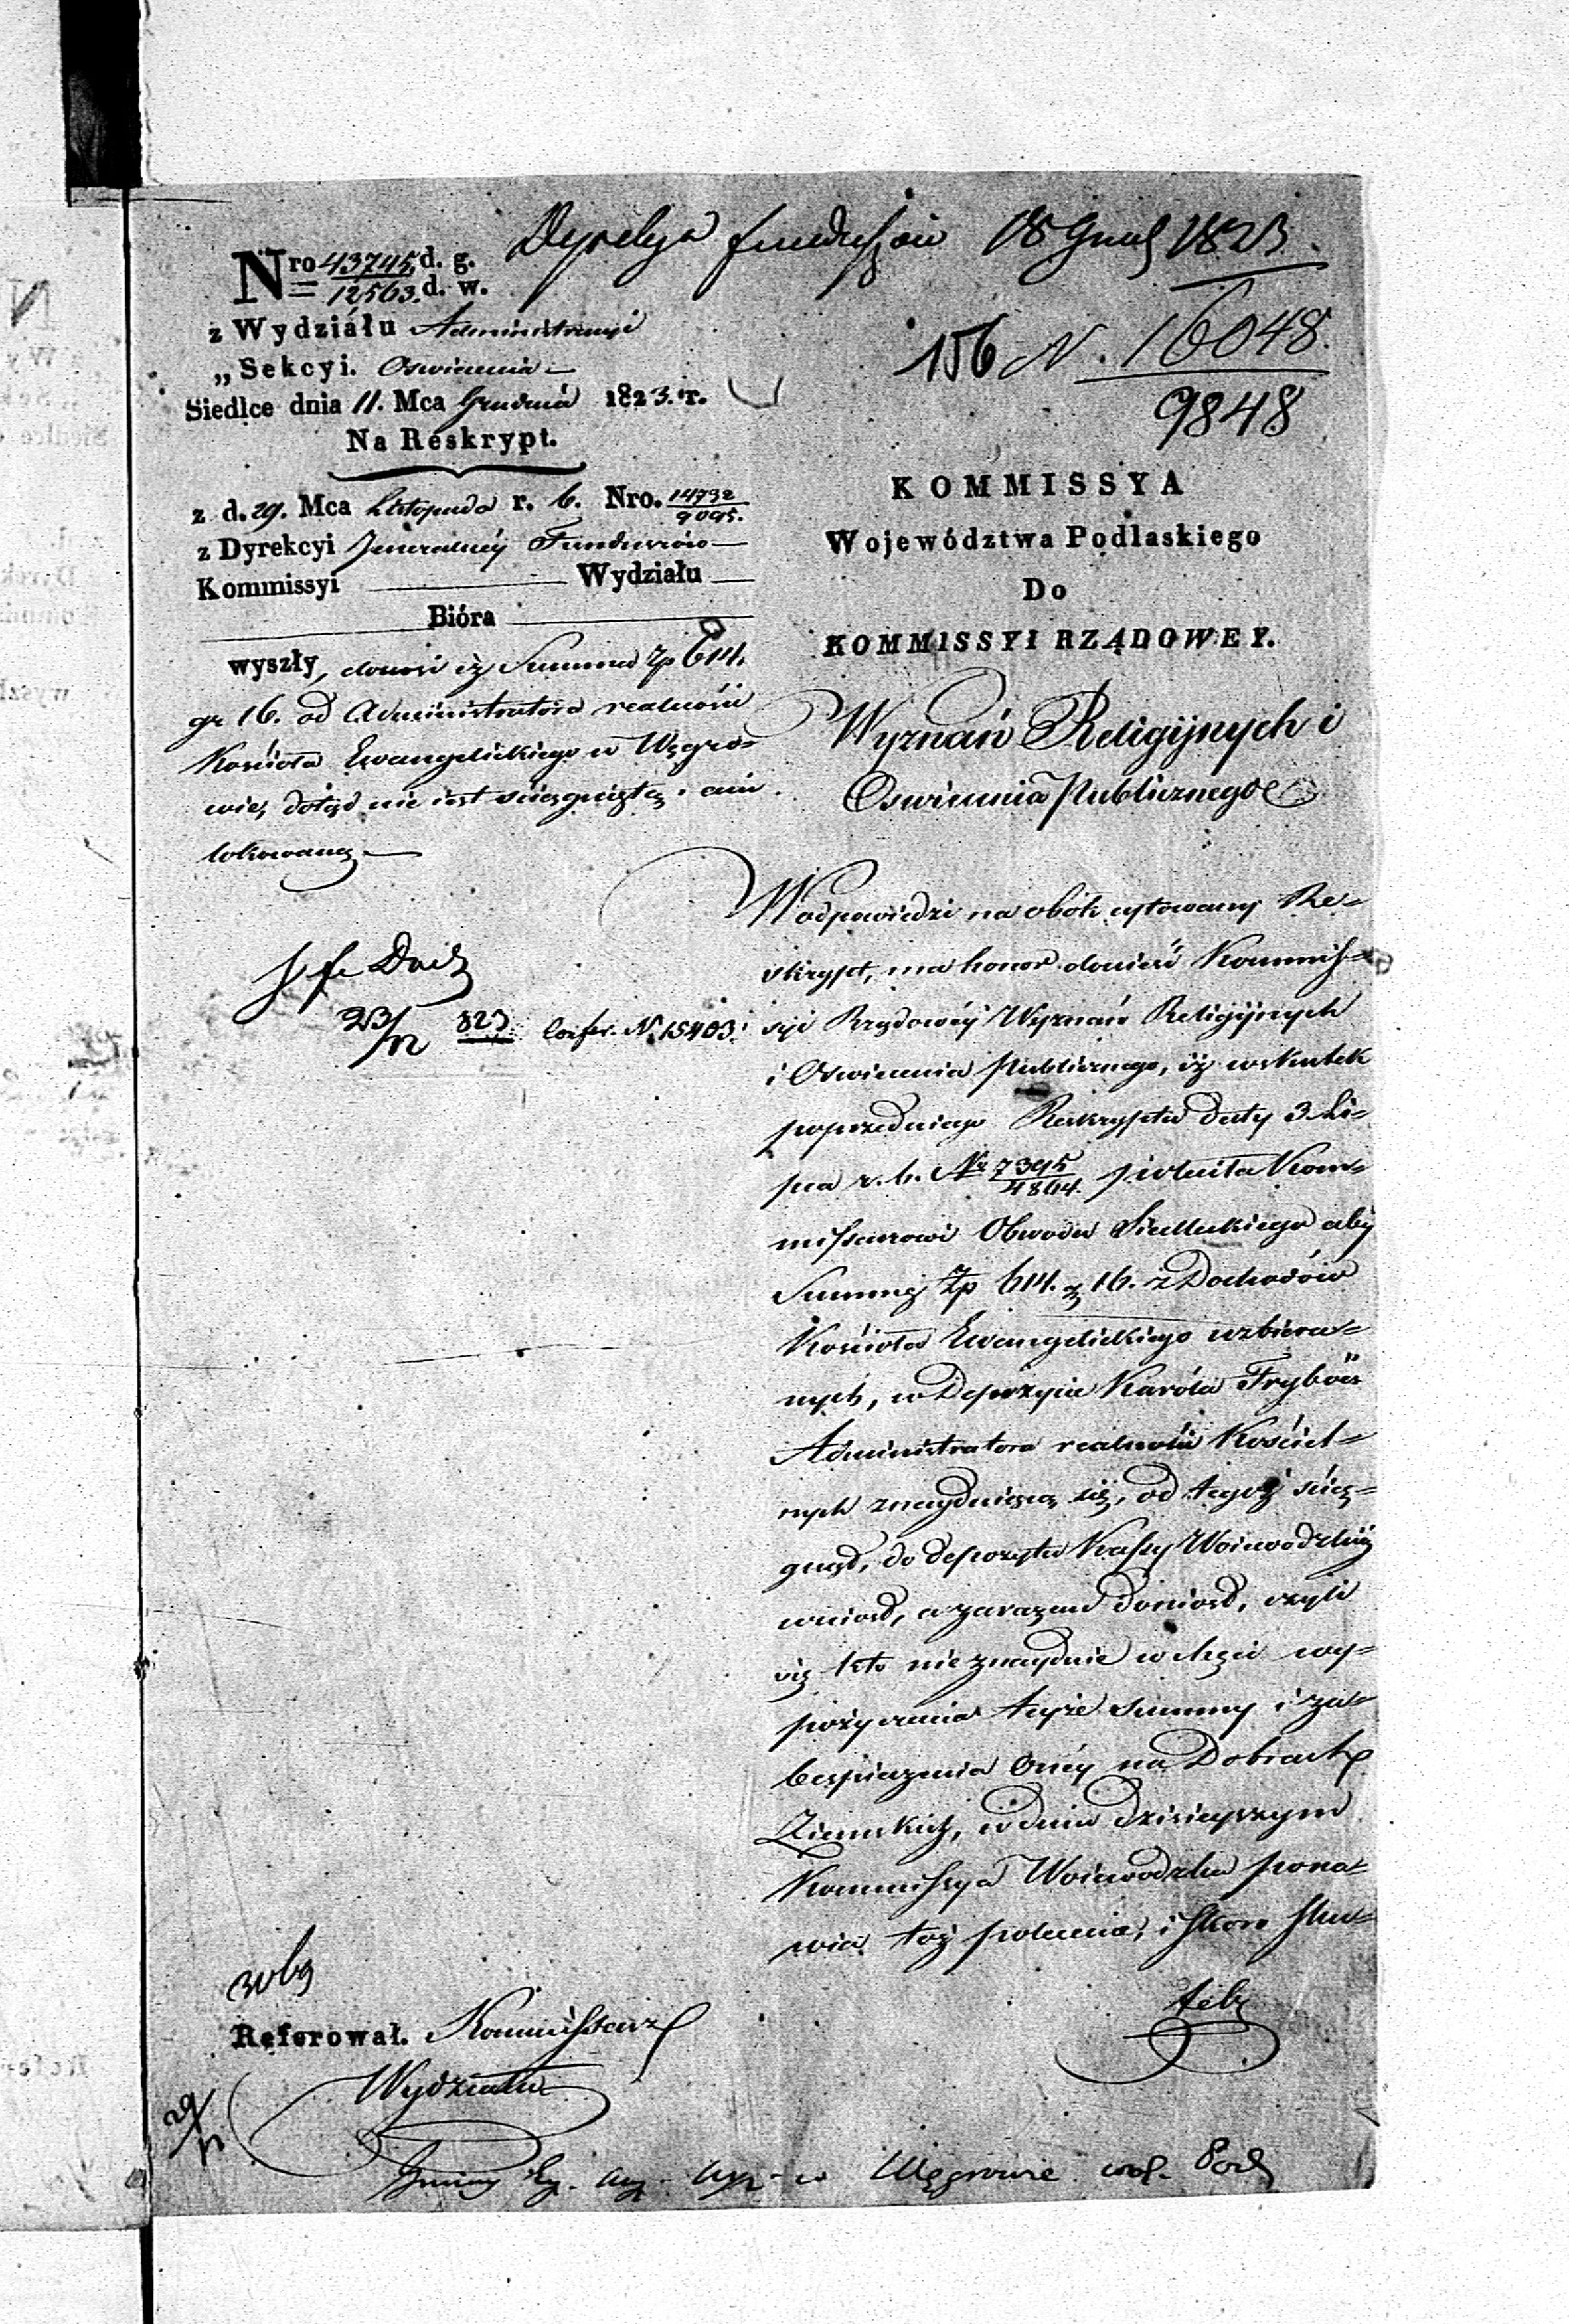 Dyrekcya funduszów 18 Grud 1823.
156 N. 16048.
9848
Nro 43745 d. g.
12563. d. w.
z Wydziáłu Administracyi
„Sekcyi. Oswiecenia
Siedlce dnia 11. Mca Grudnia 1823. r.
Na Reskrypt.
z d. 29. Mca Listopada r. b. Nro. 14732
9095.
z Dyrekcyi Jeneralnéy Funduszów
Kommissyi Wydziału
Bióra
wyszły, donosi iż Summa Zp 614.
gr 16. od Administratora realności
Kościoła Ewangelickiego w Węgro=
wie, dotąd nie iest ściągniętą i ani
lokowaną.
23/12 823 Confer. N. 15403.
KOMMISSYA
Województwa Podlaskiego
Do
KOMMISSYI RZĄDOWEY.
Wyznań Religijnych i
Oswiecenia Publicznego
W odpowiedzi na obok cytowany Re=
skrypt, ma honor donieść Kommis=
syi Rządowéy Wyznań Religijnych
i Oswiecenia Publicznego, iż wskutek
poprzedniego Reskryptu daty 3. Li=
pca r. b. Nr 7395
4864. poleciła Kom=
missarowi Obwodu Siedleckiego aby
Summę Zp 614. gr 16. z Dochodów
Kościoła Ewangelickiego uzbiera=
nych, w Depozycie Karóla Fryboes
Administratora realności Kościel=
nych znayduiącą się, od tegoż ścią=
gnął, do depozytu Kassy Woiewodzkiéy
wniósł, a zarazem doniósł, czyli
się kto nieznayduie w chęci wy=
pożyczenia teyże summy i za=
bespieczenia onéy na Dobrach
Ziemskich, w dniu dzisieyszym
Kommissya Woiewodzka pona=
wia toż polecenie, i skoro sku=
tek
Referował. Kommissarz
Wydziału
29/12
Gminy Ew. Aug. Wyz. w Węgrowie woj. Podl